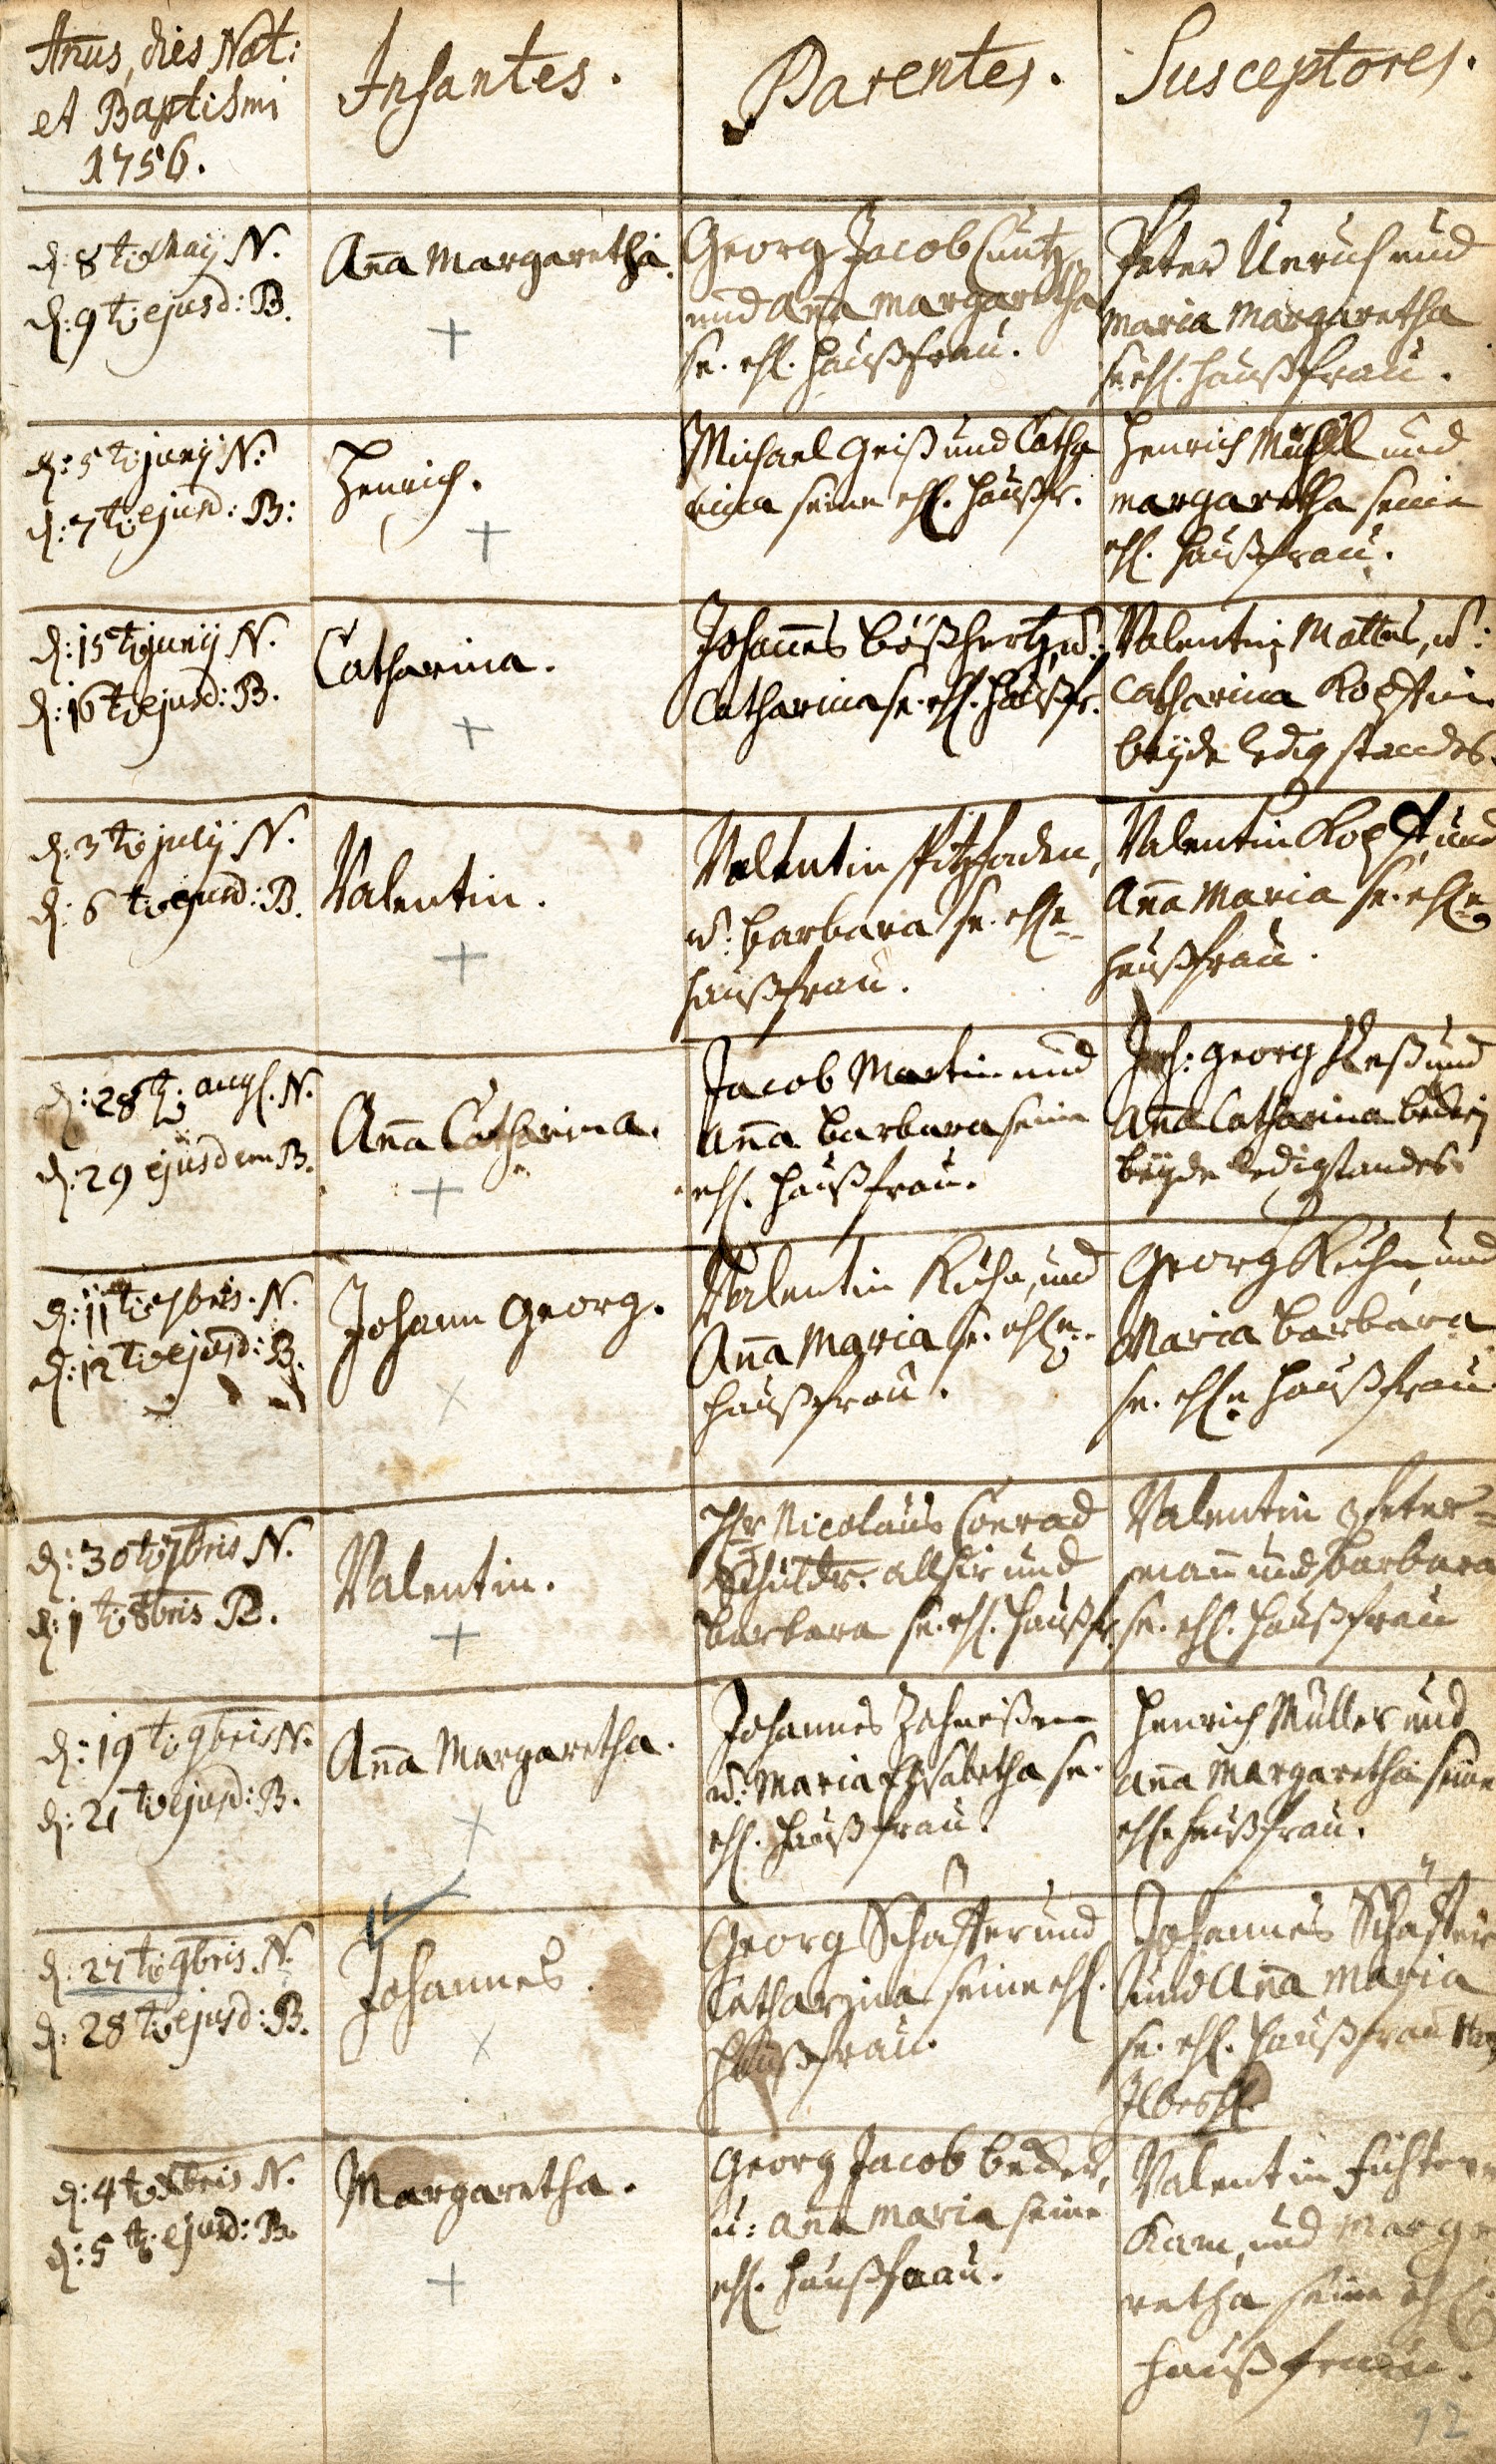 Añus, dies Nat:
et Baptismi
1756.
Infantes.
Parentes.
Susceptores.
d: 8t: Maij N.
d: 9t: ejusd: B.
Aña Margaretha.
Georg Jacob Cuntz
und Aña Margaretha
se. ehl. Haußfrau.
Peter Unruh und
Maria Margaretha
se ehl. Haußfrau.
d: 5t: junij N:
d: 7t: ejusd: B:
Henrich.
Michael Geiß und Catha
rina seine ehl. Haußfr.
Henrich Mühl und
Margaretha seine
ehl. Haußfrau.
d: 15t: junij N.
d: 16t: ejusd: B.
Catharina.
Johañes Bößhertz, u:
Catharina se. ehl. Haußfr.
Valentin Mattes, u:
Catharina Kopffin
beyde ledig standes.
d: 3t: julij N.
d: 6t: ejusd: B.
Valentin.
Valentin Pitzfaden,
u: Barbara se. ehle
haußfrau.
Valentin Kopff und
Aña Maria se. ehle
haußfrau.
d: 28t: augl. N.
d: 29 ejusdem B.
Aña Catharina.
Jacob Martin und
Aña Barbara seine
ehl. Haußfrau.
Joh: Georg Heß und
Aña Catharina
beyde ledigstandes
d: 11t: 7bris. N.
d: 12t: ejusd: B.
Johann Georg.
Valentin Kuhn, und
Aña Maria se. ehle
haußfrau.
Georg Kuhn und
Maria Barbara
se. ehle Haußfrau
d: 30t: 7bris N.
d: 1t: 8bris B.
Valentin.
Hr Nicolaus Conrad
Schuldr. allhir und
Barbara se. ehl. Haußfr.
Valentin Peter=
mañ und Barbara
se. ehl. Haußfrau
d: 19t: 9bris N.
d: 21t: ejusd: B.
Aña Margaretha.
Johannes Zahneißen
u: Maria Elisabetha se.
ehl. Haußfrau.
Henrich Müller und
Aña Margaretha seine
ehle haußfrau.
d: 27t: 9bris. N.
d: 28t: ejusd: B.
Johannes.
Georg Schäffer und
Catharina seine ehl.
Haußfrau.
Johannes Schäffer
und Aña Maria
se. ehl. Haußfrau
d: 4t: Xbris N.
d: 5t: ejusd: B.
Margaretha.
Georg Jacob Becker,
u: Aña Maria seine
ehl. Haußfrau.
Valentin Fichten
Kam, und Marga
retha seine ehl.
Haußfrau.
92